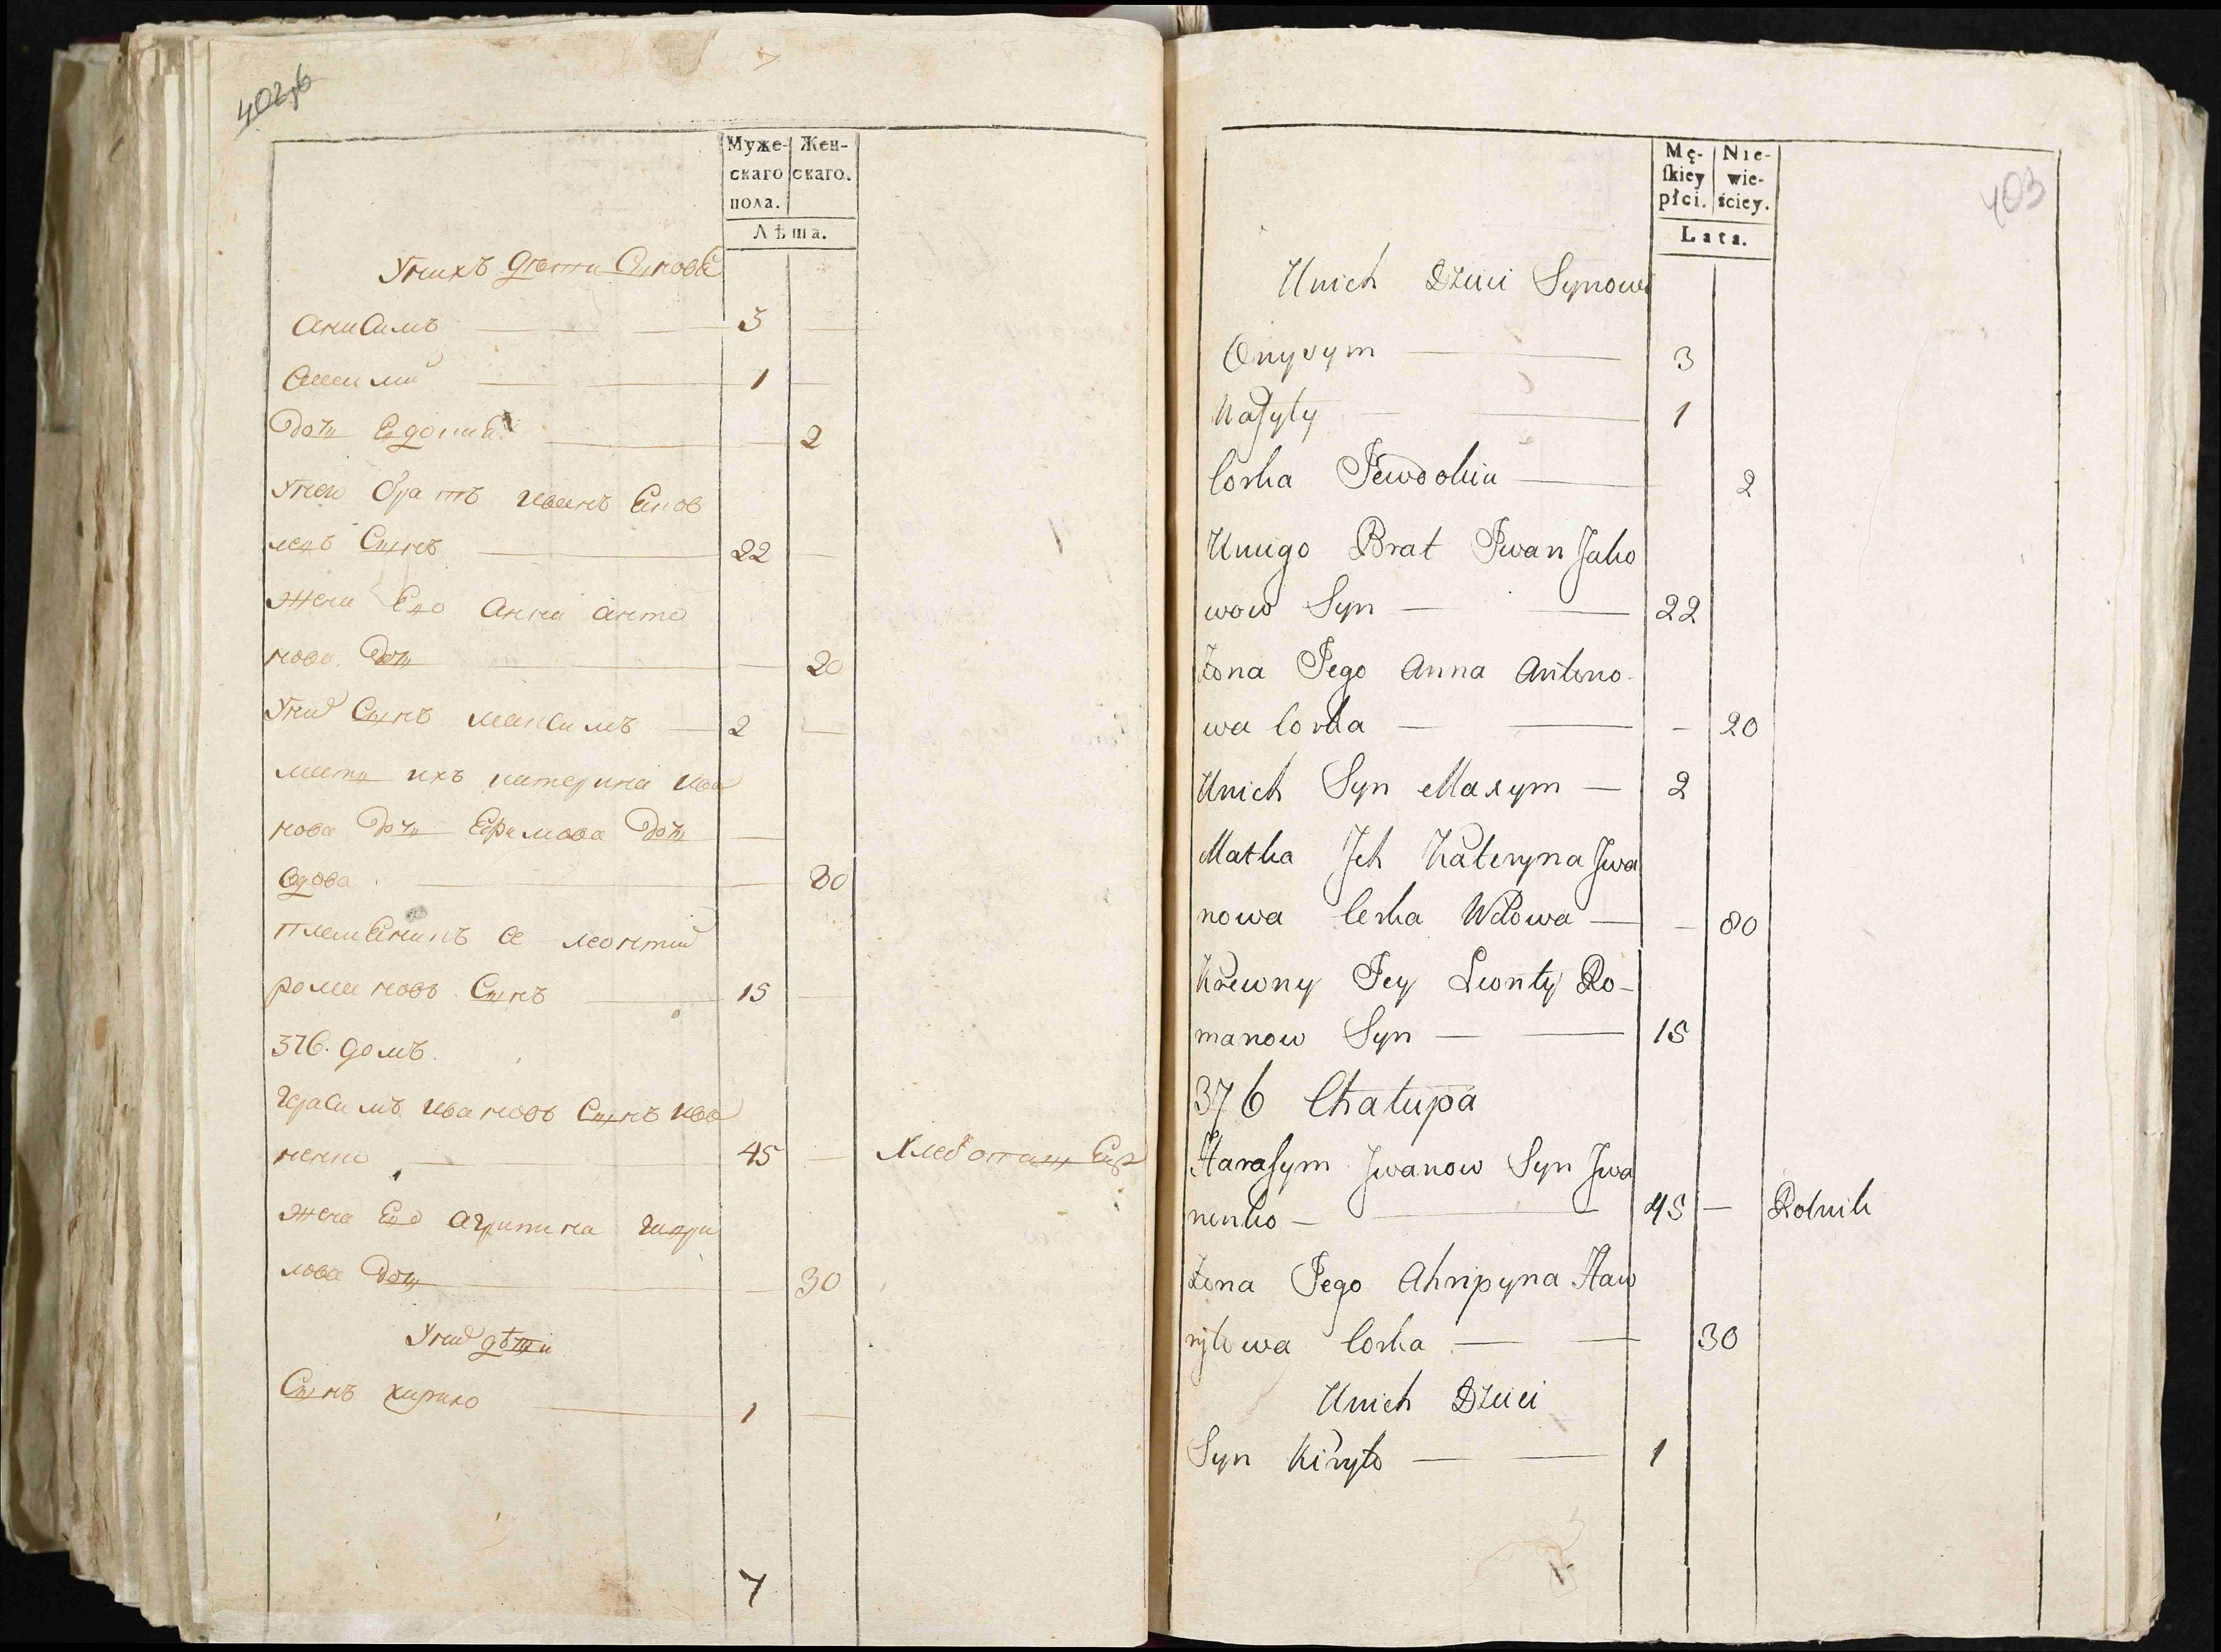 402об
Муже- Жен-
скаго скаго.
пола.
Лѣта.
Унихъ дѣти Синове
анисимъ 3
1
Дочь Евдокия 2
Унего братъ иванъ Яков
левъ Сынъ 22
жена Его анна анто
нова Дочь 20
Униⷯ Сынъ максимъ 2
мать ихъ катерина ива
нова Дочь Ефимова Дочь
вдова 80
племенникъ Ея леонтий
романовъ Сынъ 15
376. домъ.
герасимъ ивановъ Сынъ ива
ненко 45 Хлебопашець
жена Его агрипина гаври
лова Дочь 30
Униⷯ дѣти
Сынъ кирило 1
7
403
Mę- Nie-
ſkiey wie-
płci. ściey.
Lata.
Unich Dzieci Synowi
Onysym 3
Kaſyty 1
Corka Jewdokia 2
Uniego Brat Jwan Jako
wow Syn 22
Zona Jego Anna Antono-
wa Corka 20
Unich Syn Maxym 2
Matka Jch Kateryna Jwa
nowa Corka Wdowa 80
Krewny Jey Leonty Ro-
manow Syn 15
376 Chałupa
Haraſym Jwanow Syn Jwa
nenko 45 Rolnik
Zona Jego Ahripyna Haw
ryłowa Corka 30
Unich Dzieci
Syn Kiryło 1